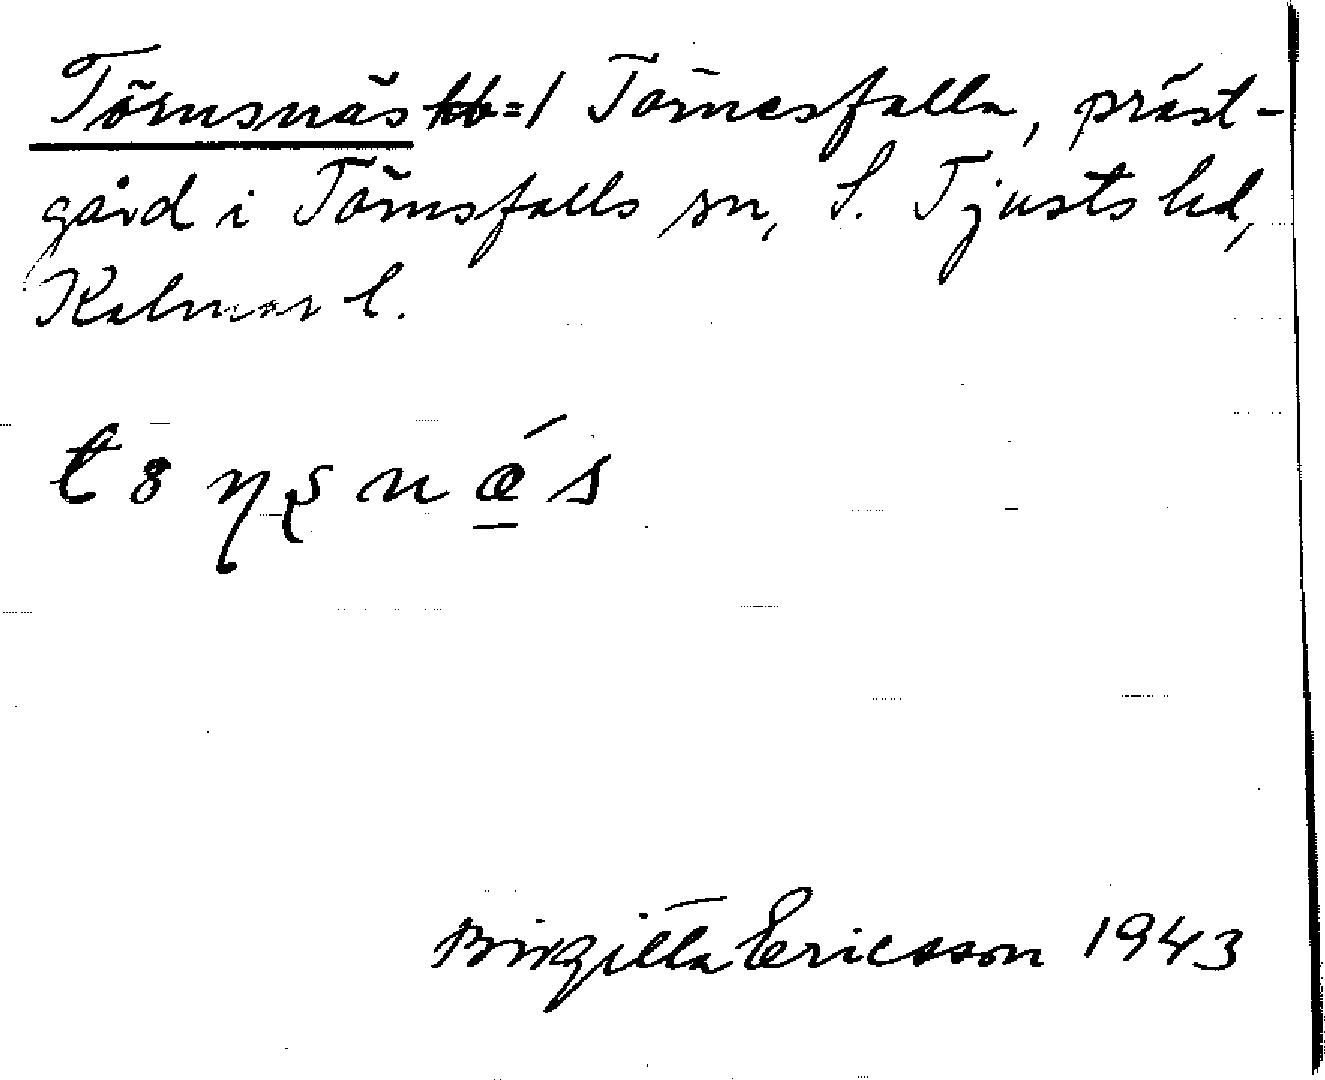 Törnsnäs =/ Törnesfalla, präst-
gård i Törnsfalls sn, S. Tjusts hd,
Kalmar l.
Birgitta Ericsson 1943